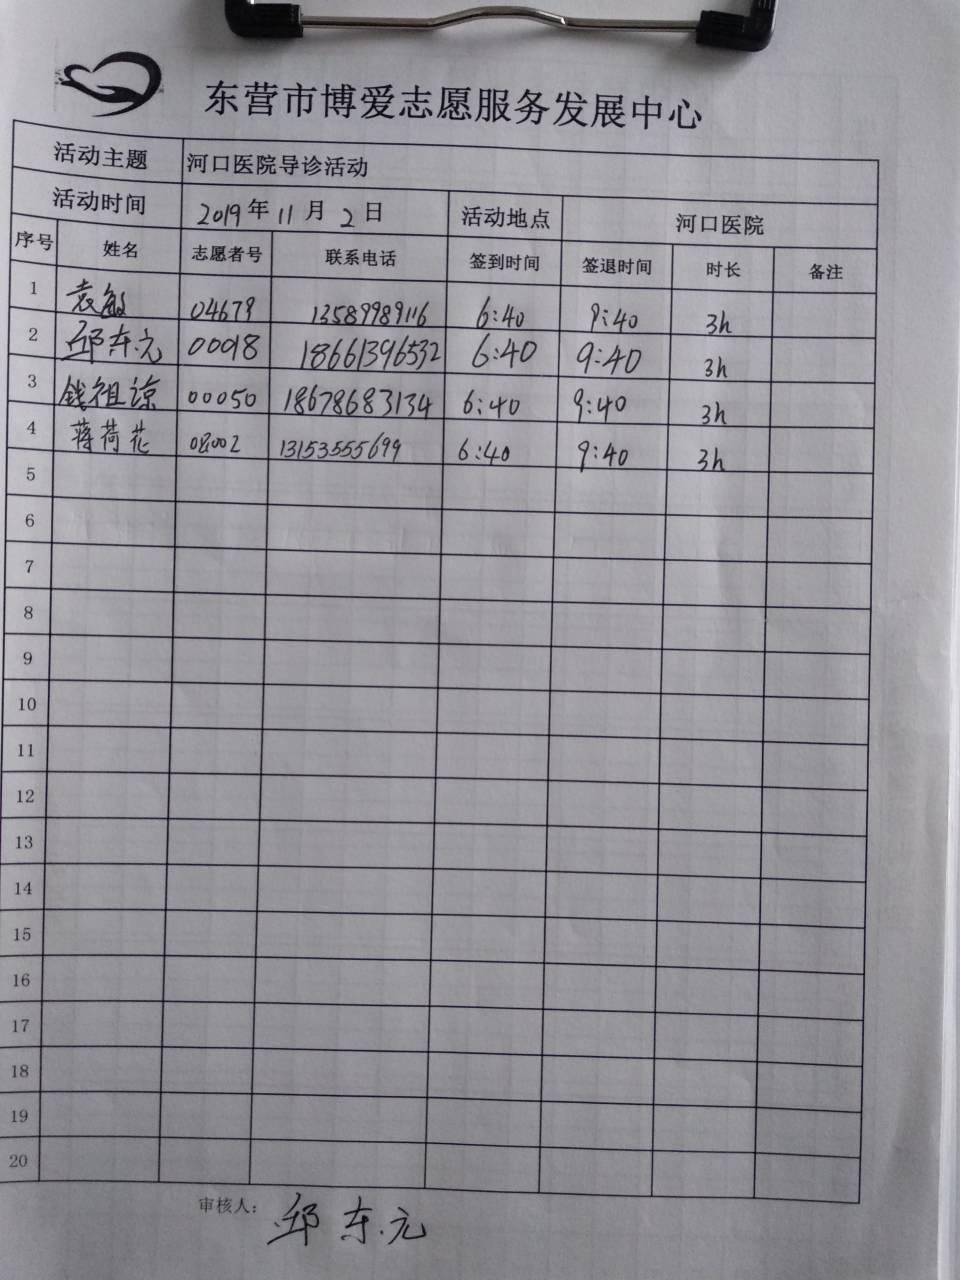 东营市博爱志愿服务发展中心
活动主题 河口医院导诊活动
活动时间 2019年11月2日 活动地点 河口医院
序号 姓名 志愿者号 联系电话 签到时间 签退时间 时长 备注
1 袁敏 04679 13589989116 6:40 9:40 3h
2 邱东元 00098 18661396532 6:40 9:40 3h
3 钱祖谅 00050 18678683134 6:40 9:40 3h
4 蒋荷花 08002 13153555699 6:40 9:40 3h
5
6
7
8
9
10
11
12
13
14
15
16
17
18
19
20
审核人：邱东元